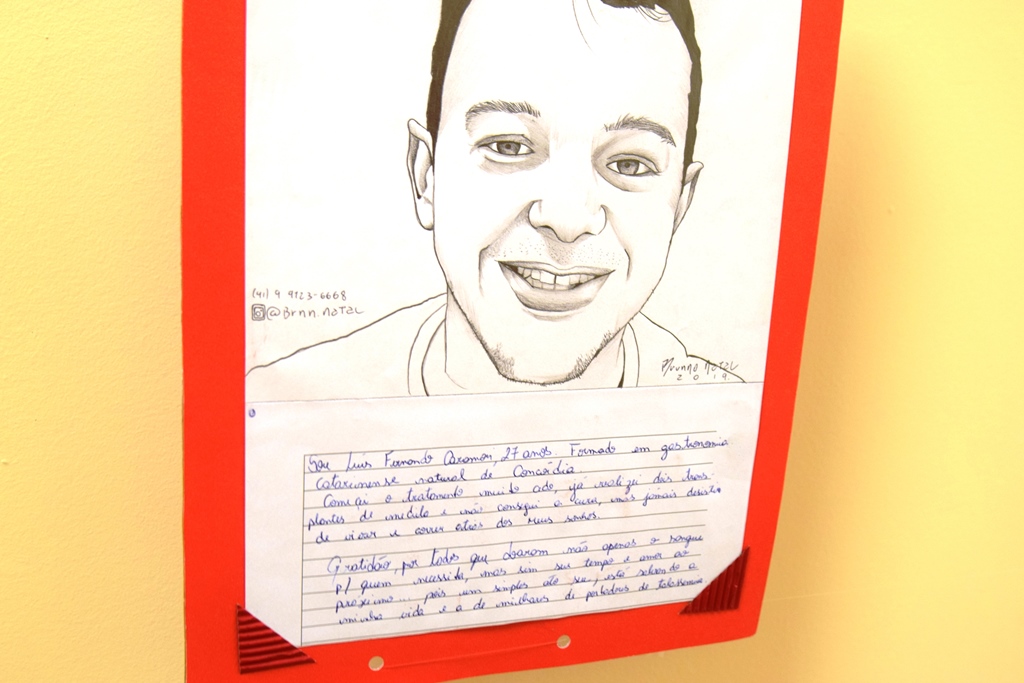 (41) 9 9123-6668
@Brnn.NATAL
Brunno NATAL
2019.
Sou Luis Fernando Caramori, 27 anos. Formado em gastronomia
Catarinense natural de Concórdia.
Começi o tratamento muito cedo, já realizei dois trans
plantes de medula e não consegui a cura, mas jamais desistir
de viver e correr atrás dos meus sonhos.
Gratidão, por todos que doaram não apenas o sangue
p/ quem necessita, mas sim seu tempo e amor ao
próximo... pois um simples ato seu, está salvando a
minha vida e a de milhares de portadores de talassemia